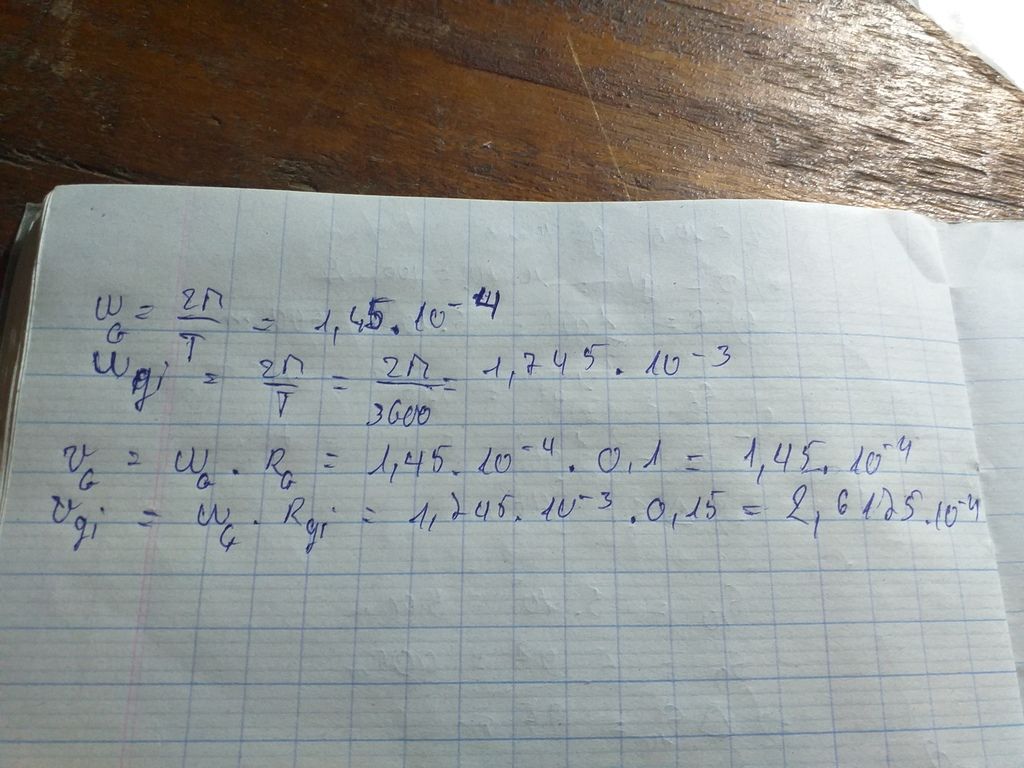 ω_G = 2π/T = 1,45.10^-4
ω_gi = 2π/T = 2π/3600 = 1,745.10^-3
v_G = ω_G . R_G = 1,45.10^-4 . 0,1 = 1,45.10^-4
v_gi = ω_G . R_gi = 1,745.10^-3 .0,15 = 2,6175.10^-4